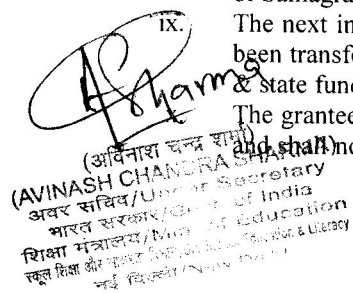 ix.
The next in
been transfe
& state fund
The grantee
and shall no
Sharma
(अविनाश चन्द्र शर्मा)
(AVINASH CHANDRA SHARMA)
अवर सचिव/Under Secretary
भारत सरकार/Govt. of India
शिक्षा मंत्रालय/Min. of Education
स्कूल शिक्षा और Education & Literacy
नई दिल्ली/New Delhi